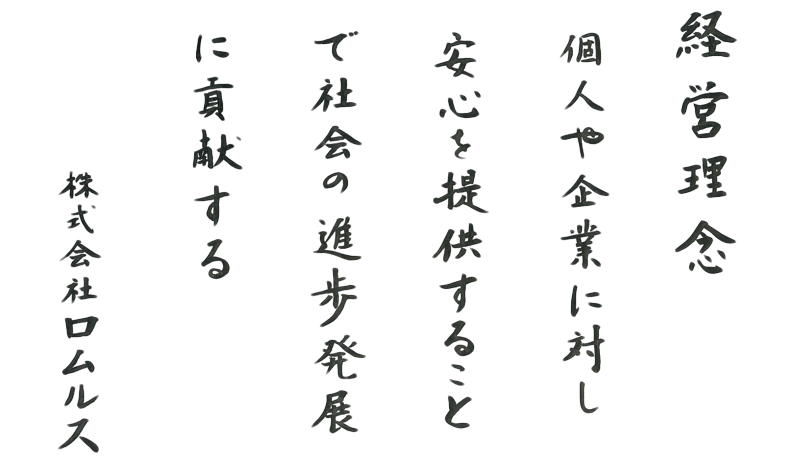 経営理念
個人や企業に対し
安心を提供すること
で社会の進歩発展
に貢献する
株式会社ロムルス